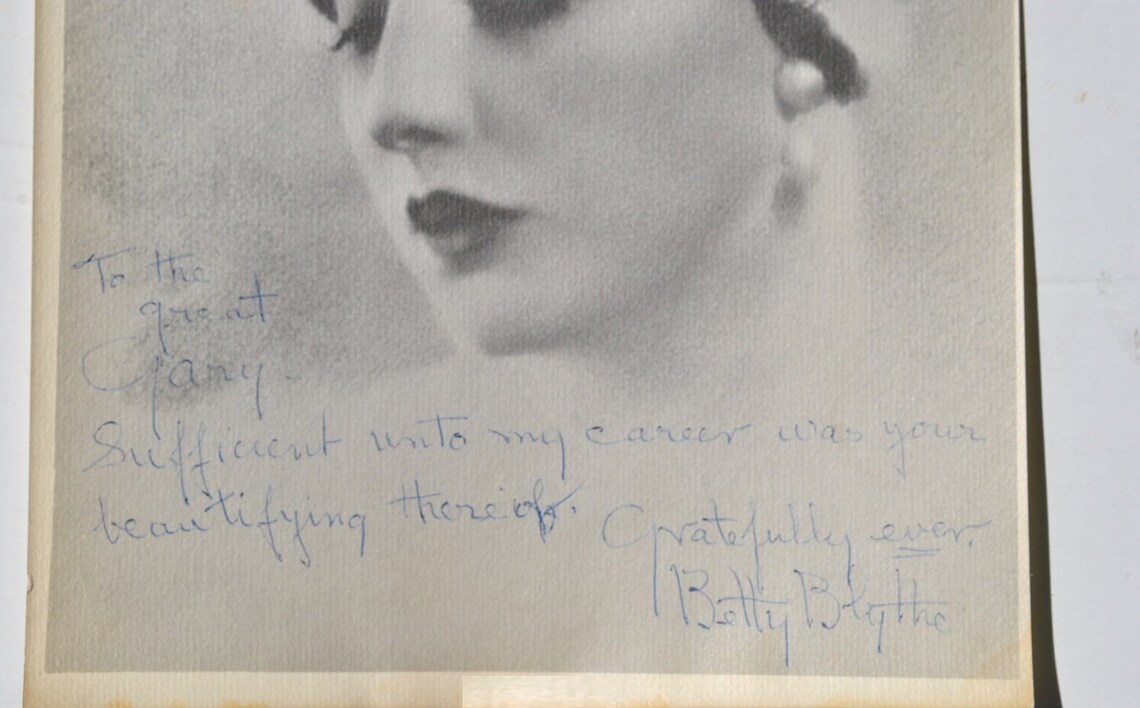 To the
great
Gany -
Sufficient unto my career was your
beautifying thereof.
Gratefully ever.
Betty Blythe